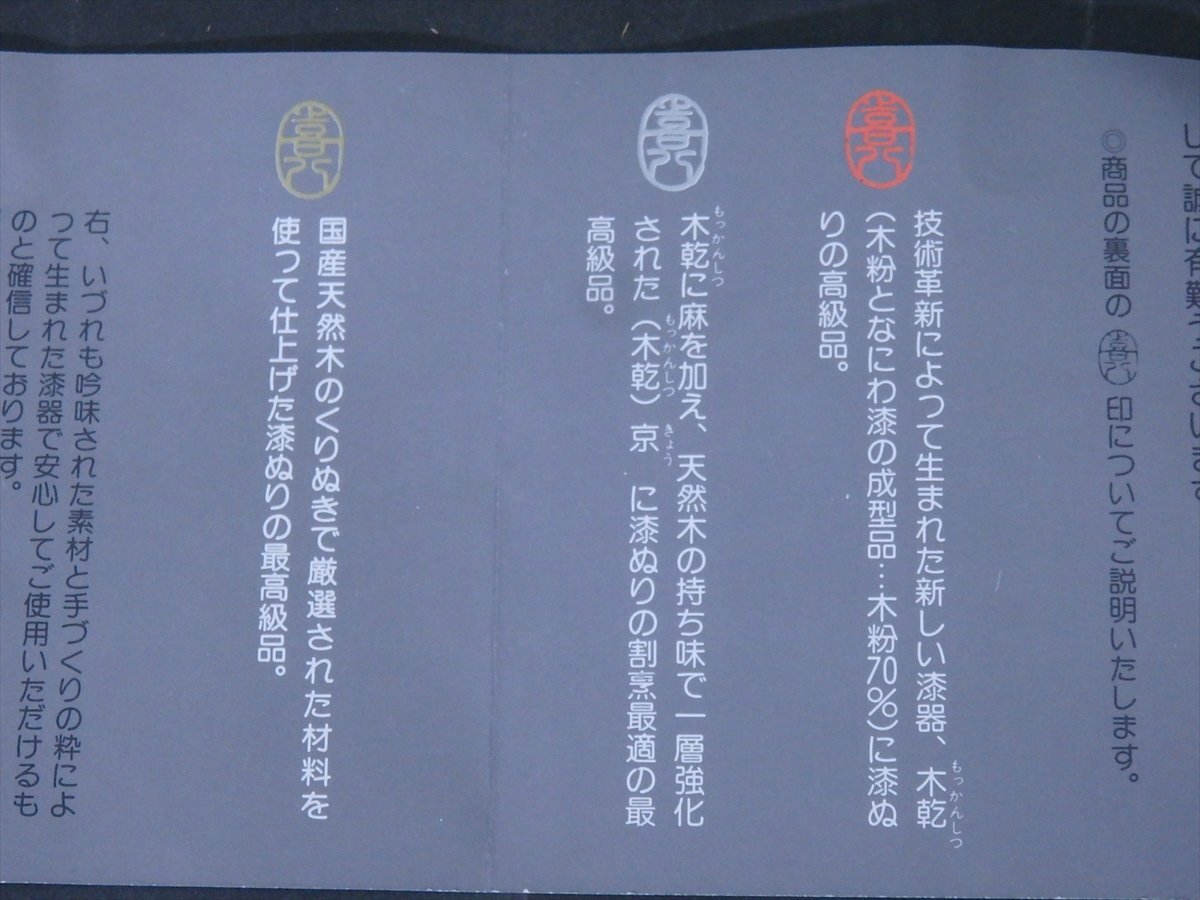 して誠に有難うございます
◎商品の裏面の 印についてご説明いたします。
技術革新によつて生まれた新しい漆器、木乾
もっかんしつ
(木粉となにわ漆の成型品…木粉70%)に漆ぬ
りの高級品。
木乾に麻を加え、天然木の持ち味で一層強化
もっかんしつ
された(木乾)京 に漆ぬりの割烹最適の最
もっかんしつ きょう
高級品。
国産天然木のくりぬきで厳選された材料を
使つて仕上げた漆ぬりの最高級品。
右、いづれも吟味された素材と手づくりの粋によ
つて生まれた漆器で安心してご使用いただけるも
のと確信しております。